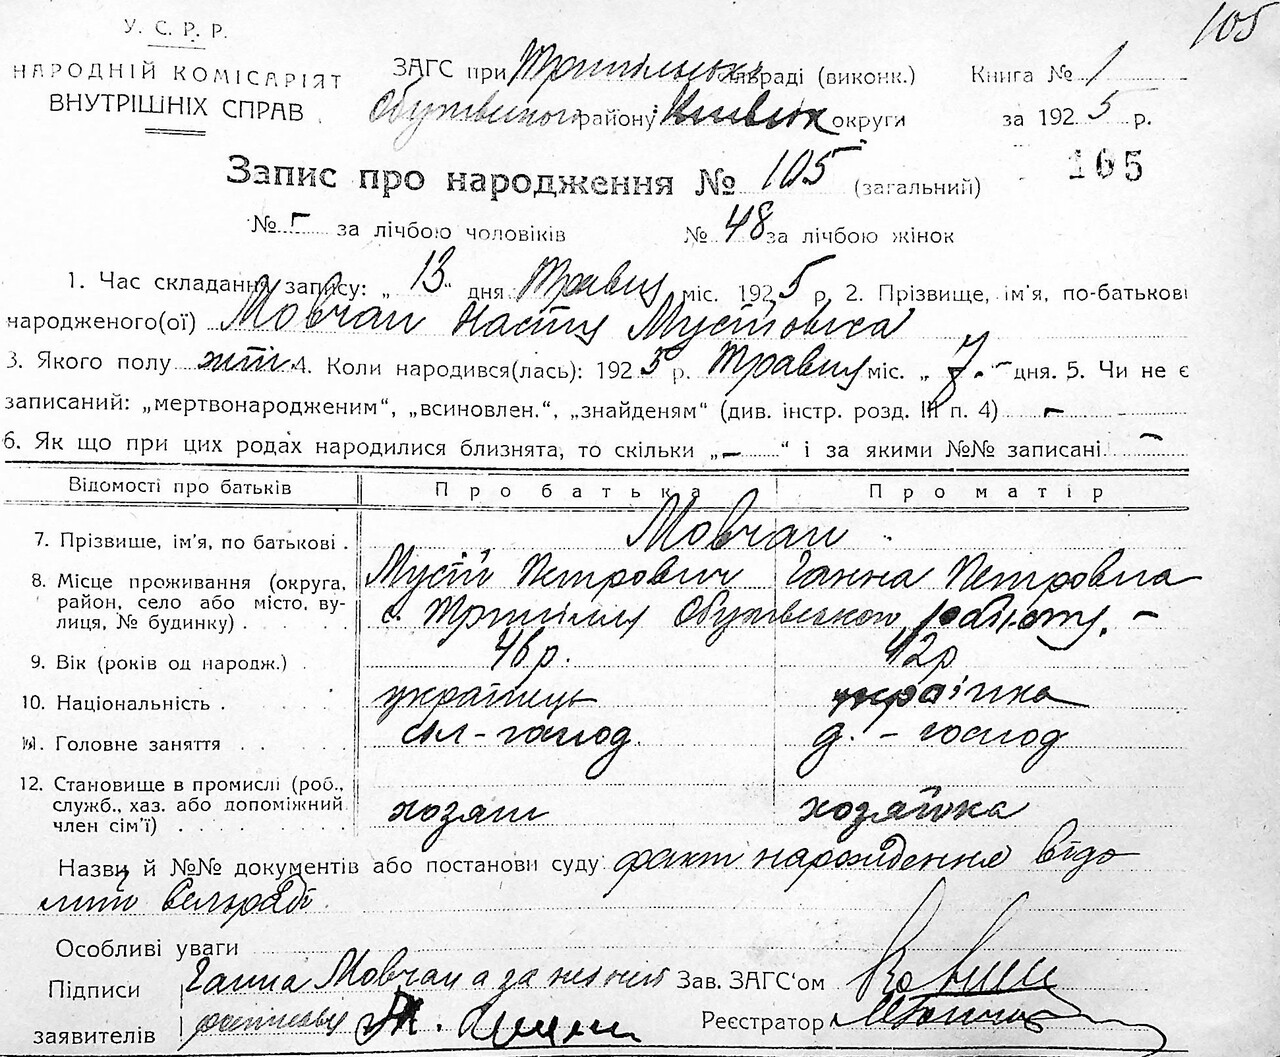 105
У. С. Р. Р.
НАРОДНІЙ КОМІСАРІЯТ
ВНУТРІШНІХ СПРАВ
ЗАГС при Трипільськ. сільраді (виконк.) Книга № 1
Обухівського району Київськ округи за 1925 р.
Запис про народження № 105 (загальний) 105
№ - за лічбою чоловіків № 48 за лічбою жінок
1. Час складання запису: „ 13 " дня Травня міс. 1925 р. 2. Прізвище, ім'я, по-батькові
народженого(ої) Мовчан Настя Мусіївна
3. Якого полу жін. 4. Коли народився(лась): 1925 р. Травня міс. „ 7. - дня. 5. Чи не є
записаний: „мертвонародженим“, „всиновлен.“, „знайденям“ (див. інстр. розд. III п. 4) -
6. Як що при цих родах народилися близнята, то скільки „ - “ і за якими №№ записані -
Відомості про батьків Про батька Про матір
7. Прізвише, ім'я, по батькові . Мовчан
Мусій Петрович Ганна Петровна
8. Місце проживання (округа, район, село або місто, ву-
лиця, № будинку) . . . . . с. Трипілля Обухівського району. -
9. Вік (років од народж.) . 46 р. 42 р
10. Національність . українець українка
11. Головне заняття сіл-господ. д. - господ
12. Становище в промислі (роб.,
служб., хаз. або допоміжний
член сім'ї) хозяїн хозяйка
Назви й №№ документів або постанови суду факт народження відо
мий Сельраді.
Особливі уваги
Підписи Ганна Мовчан а за неї Зав. ЗАГС'ом
заявителів Реєстратор